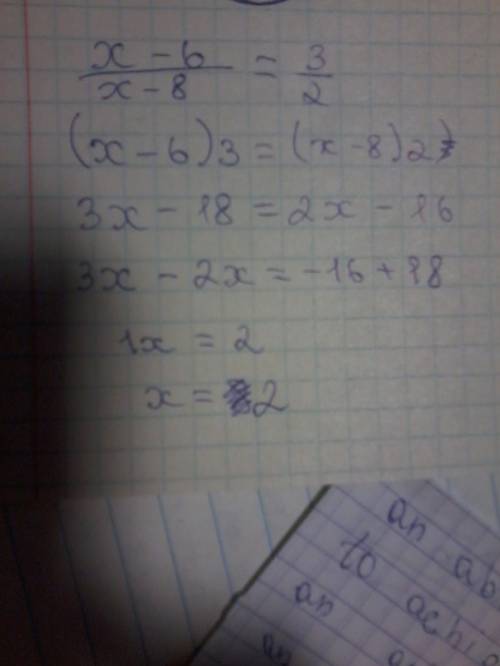 x - 6 / x - 8 = 3 / 2
(x - 6)3 = (x - 8)2
3x - 18 = 2x - 16
3x - 2x = -16 + 18
1x = 2
x = 2
an
to ab
an achi
an